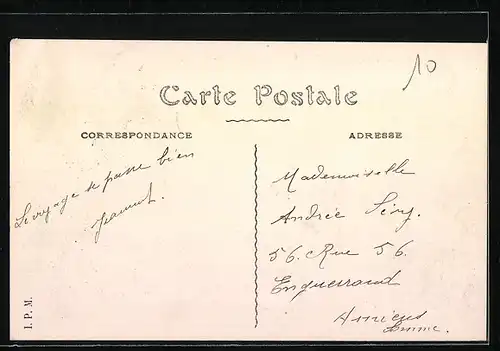 10
Carte Postale
CORRESPONDANCE
ADRESSE
Le voyage se passe bien
Mademoiselle
Andrée
56. Rue 56.
Enguerrand
Amiens
Somme.
I. P. M.